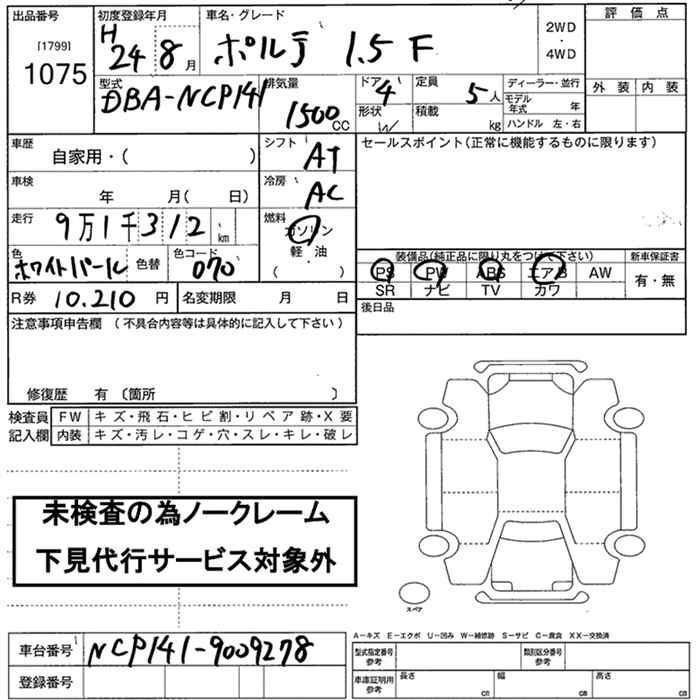 出品番号 [1799] 1075
初度登録年月 H 24 8 月
車名・グレード ポルテ 1.5 F
2WD ・ 4WD
評価点
外装 内装
型式 DBA-NCP141
排気量 1500 CC
ドア 4
形状 W
定員 5 人
積載 kg
ディーラー・並行
モデル年式 年
ハンドル 左・右
車歴 自家用・( )
シフト AT
セールスポイント(正常に機能するものに限ります)
車検 年 月( 日)
冷房 AC
走行 9万1千312 km
燃料 ガソリン 軽・油 ( )
色 ホワイトパール 色替
色コード 070
装備品(純正品に限り丸をつけて下さい)
PS PW ABS エアB AW
SR ナビ TV カワ
新車保証書 有・無
R券 10.210 円
名変期限 月 日
後日品
注意事項申告欄 (不具合内容等は具体的に記入して下さい)
修復歴 有 〔箇所 〕
検査員記入欄
FW キズ・飛石・ヒビ割・リペア跡・X要
内装 キズ・汚レ・コゲ・穴・スレ・キレ・破レ
未検査の為ノークレーム
下見代行サービス対象外
スペア
車台番号 NCP141-9009278
登録番号
A−キズ E−エクボ U−凹み W−補修跡 S−サビ C−腐食 XX−交換済
型式指定番号 参考
類別区分番号 参考
車庫証明用 参考
長さ cm
幅 cm
高さ cm